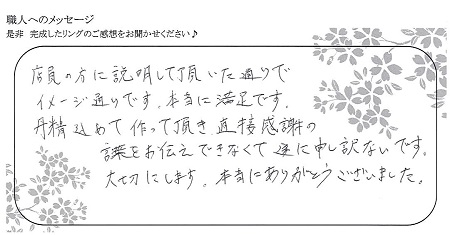 職人へのメッセージ
是非 完成したリングのご感想をお聞かせください♪
店員の方に説明して頂いた通りで
イメージ通りです。本当に満足です。
丹精込めて作って頂き、直接感謝の
言葉をお伝えできなくて逆に申し訳ないです。
大切にします。本当にありがとうございました。